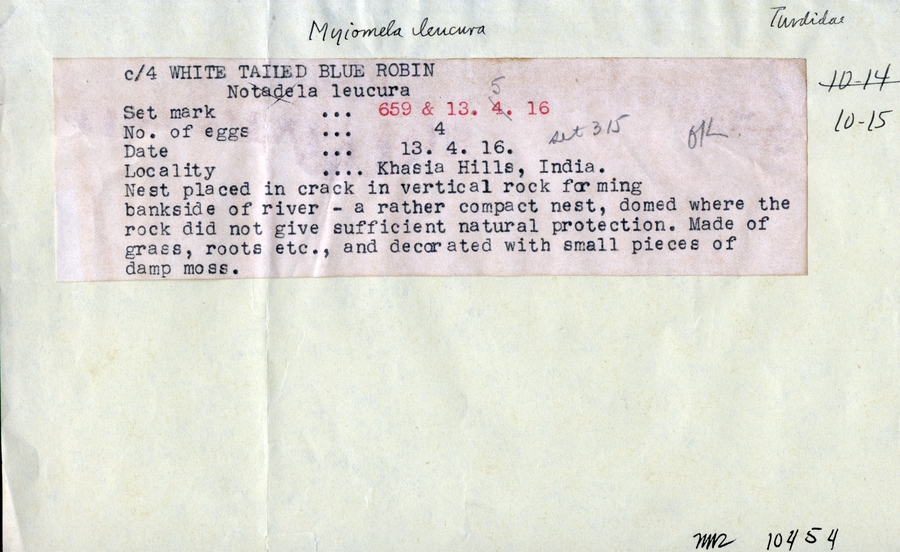 Myiomela leucura
Turdidae
10-14
10-15
c/4 WHITE TAIIED BLUE ROBIN
Notadela leucura
Set mark ... 659 & 13. 4. 16
5
No. of eggs ... 4
set 315
Date ... 13. 4. 16.
Locality .... Khasia Hills, India.
Nest placed in crack in vertical rock forming
bankside of river - a rather compact nest, domed where the
rock did not give sufficient natural protection. Made of
grass, roots etc., and decorated with small pieces of
damp moss.
10454